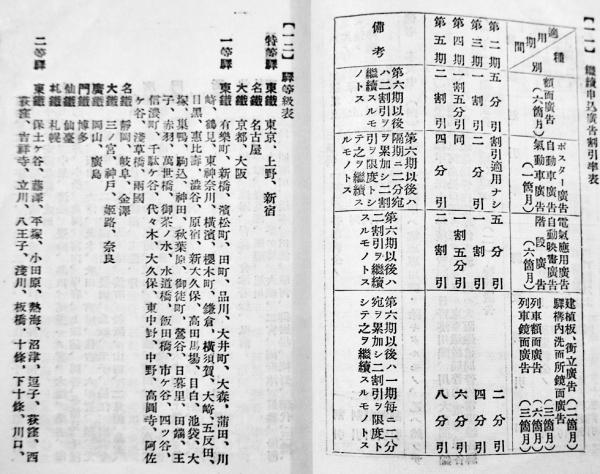 【一一】 繼續申込廣告割引率表
適用種別
期間
額面廣告(六箇月)
ポスター廣告
自動車廣告
氣動車廣告(一箇月)
電氣應用廣告
自動映書廣告
階段廣告(六箇月)
建植板、衝立廣告(二箇月)
驛構內洗面所鏡面廣告(三箇月)
列車額面廣告(六箇月)
列車鏡面廣告(三箇月)
第二期 五分引 割引適用ナシ 五分引 二分引
第三期 一割引 二分引 一割引 四分引
第四期 一割五分引 同 一割五分引 六分引
第五期 二割引 四分引 二割引 八分引
備考
第六期以後
ハ二割引ヲ
繼續スルモ
ノトス
第六期以後
隔期ニ二分宛
ヲ累加シ二割
引ヲ限度トシ
テ之ヲ繼續ス
ルモノトス
第六期以後ハ
二割引ヲ繼續
スルモノトス
第六期以後ハ一期每ニ二分
宛ヲ累加シ二割引ヲ限度ト
シテ之ヲ繼續スルモノトス
【一二】 驛等級表
特等驛 東鐵 東京、上野、新宿
名鐵 名古屋
大鐵 京都、大阪
一等驛 東鐵 有樂町、新橋、濱松町、田町、品川、大井町、大森、蒲田、川
崎、鶴見、東神奈川、橫濱、櫻木町、鎌倉、橫須賀、大崎、五反田、
目黑、惠比壽、澁谷、原宿、新大久保、高田馬場、目白、池袋、大
塚、巢鴨、駒込、神田、秋葉原、御徒町、鶯谷、日暮里、田端、王
子、赤羽、萬世橋、御茶ノ水、水道橋、飯田橋、市ケ谷、四ツ谷、
信濃町、千駄ケ谷、代々木、大久保、東中野、中野、高圓寺、阿佐
ケ谷、淺草橋、兩國
名鐵 靜岡、岐阜、金澤
大鐵 三ノ宮、神戶、姬路、奈良
廣鐵 岡山、廣島
門鐵 博多
仙鐵 仙臺
札鐵 札幌
二等驛 東鐵 保土ケ谷、藤澤、平塚、小田原、熱海、沼津、逗子、荻窪、西
荻窪、吉祥寺、立川、八王子、淺川、板橋、十條、下十條、川口、